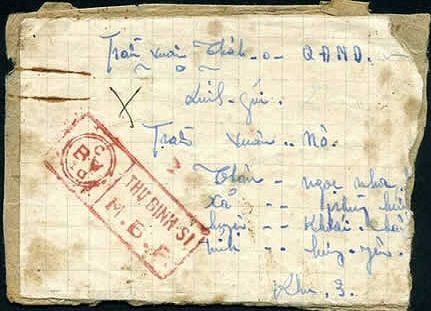 Trần Xuân Thát - o - QĐNĐ.
Kính - gửi.
Trần Xuân .. Nô.
Thôn - ngọc nha.
Xã -- phùng
huyện -- Khoái - châu
tỉnh -- hưng - yên.
Khu. 3.
THƯ BINH SĨ
M. Đ. F.